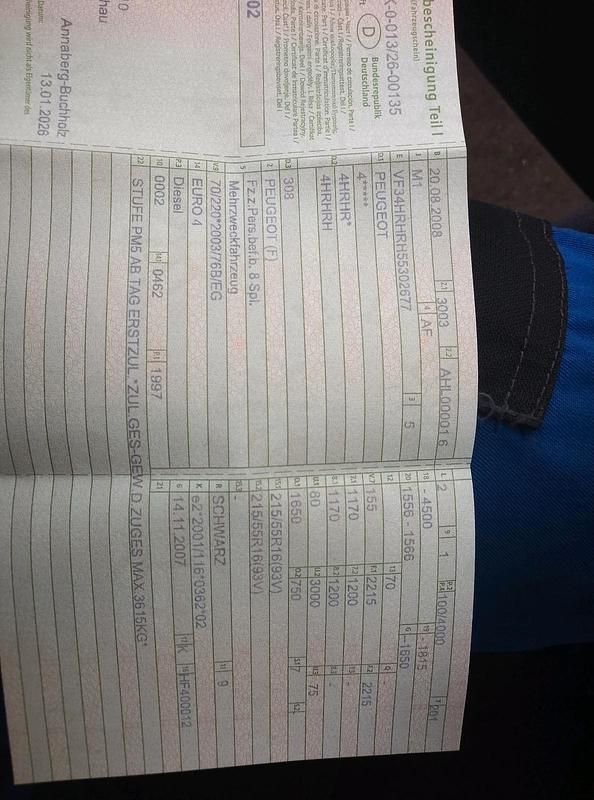 bescheinigung Teil I
(Fahrzeugschein)
K-0-013/26-00135
D
Bundesrepublik
Deutschland
02
10
hau
Annaberg-Buchholz
13.01.2026
Datum:
B 20.08.2008 2.1 3003 2.2 AHL000016
J M1 4 AF
E VF34HRHRH55302677 3 5
D.1 PEUGEOT
4*****
D.2 4HRHR*
4HRHRH
D.3 308
2 PEUGEOT (F)
5 Fz.z.Pers.bef.b. 8 Spl.
Mehrzweckfahrzeug
V.9 70/220*2003/76B/EG
14 EURO 4
P.3 Diesel
10 0002 14.1 0462 P.1 1997
22 STUFE PM5 AB TAG ERSTZUL.*ZUL.GES-GEW D ZUGES MAX.3615KG*
L 2 9 1 P.2 P.4 100/4000 T 201
18 - 4500 19 - 1815
20 1556 - 1566 G -1650
12 - 13 70 Q -
V.7 155 F.1 2215 F.2 2215
7.1 1170 7.2 1200 7.3 -
8.1 1170 8.2 1200 8.3 -
U.1 80 U.2 3000 U.3 75
O.1 1650 O.2 750 S.1 7 S.2 -
15.1 215/55R16(93V)
15.2 215/55R16(93V)
15.3 -
R SCHWARZ 11 9
K e2*2001/116*0362*02
6 14.11.2007 17 K 16 HF400012
21